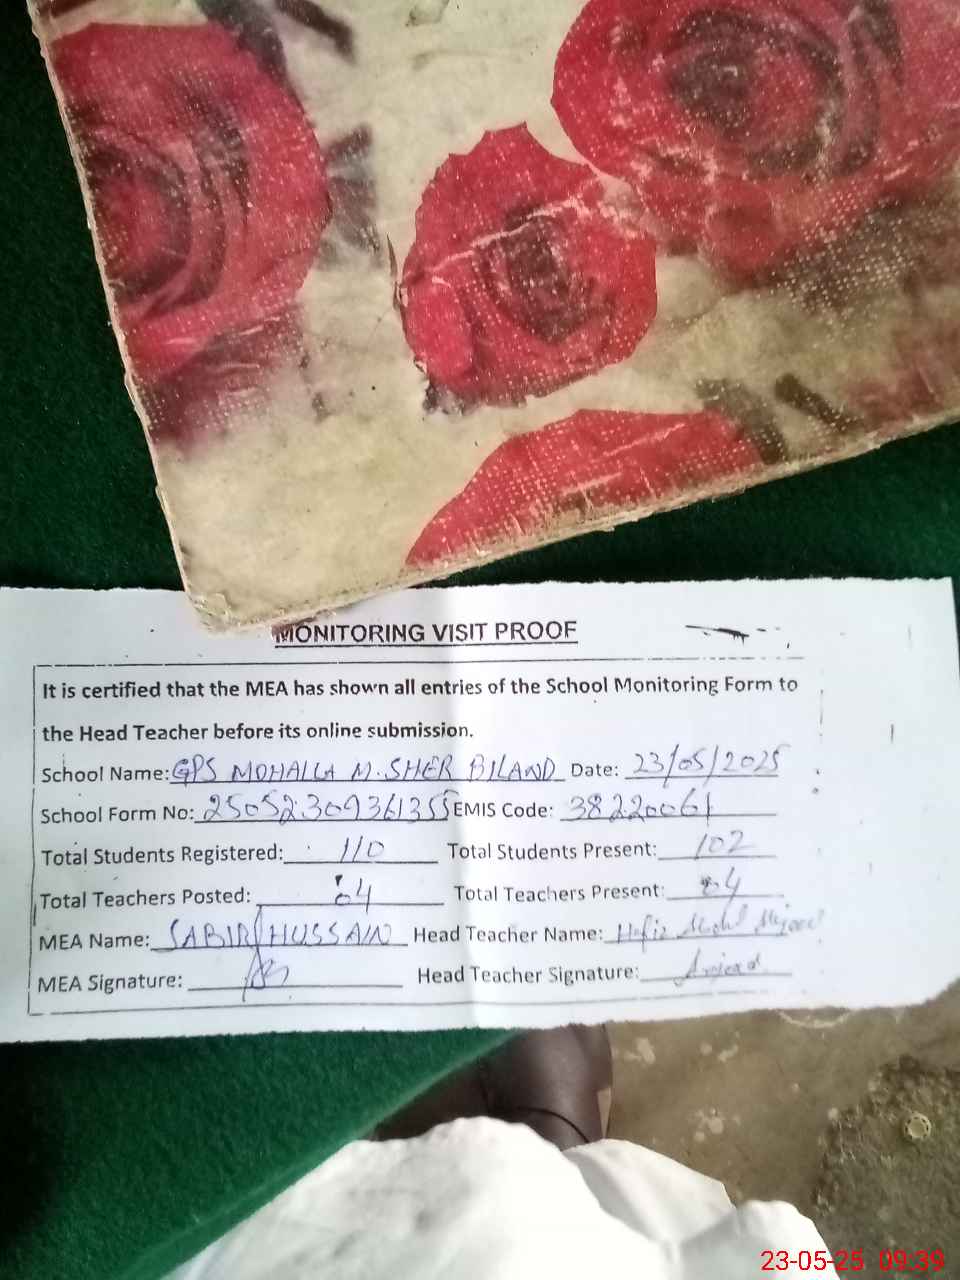 MONITORING VISIT PROOF
It is certified that the MEA has shown all entries of the School Monitoring Form to
the Head Teacher before its online submission.
School Name: GPS MOHALLA M.SHER BILAND Date: 23/05/2025
School Form No: 25052309361355 EMIS Code: 38220061
Total Students Registered: 110 Total Students Present: 102
Total Teachers Posted: 04 Total Teachers Present: 04
MEA Name: SABIR HUSSAIN Head Teacher Name: Hafiz
MEA Signature: Head Teacher Signature: Amjad
23-05-25 09:39